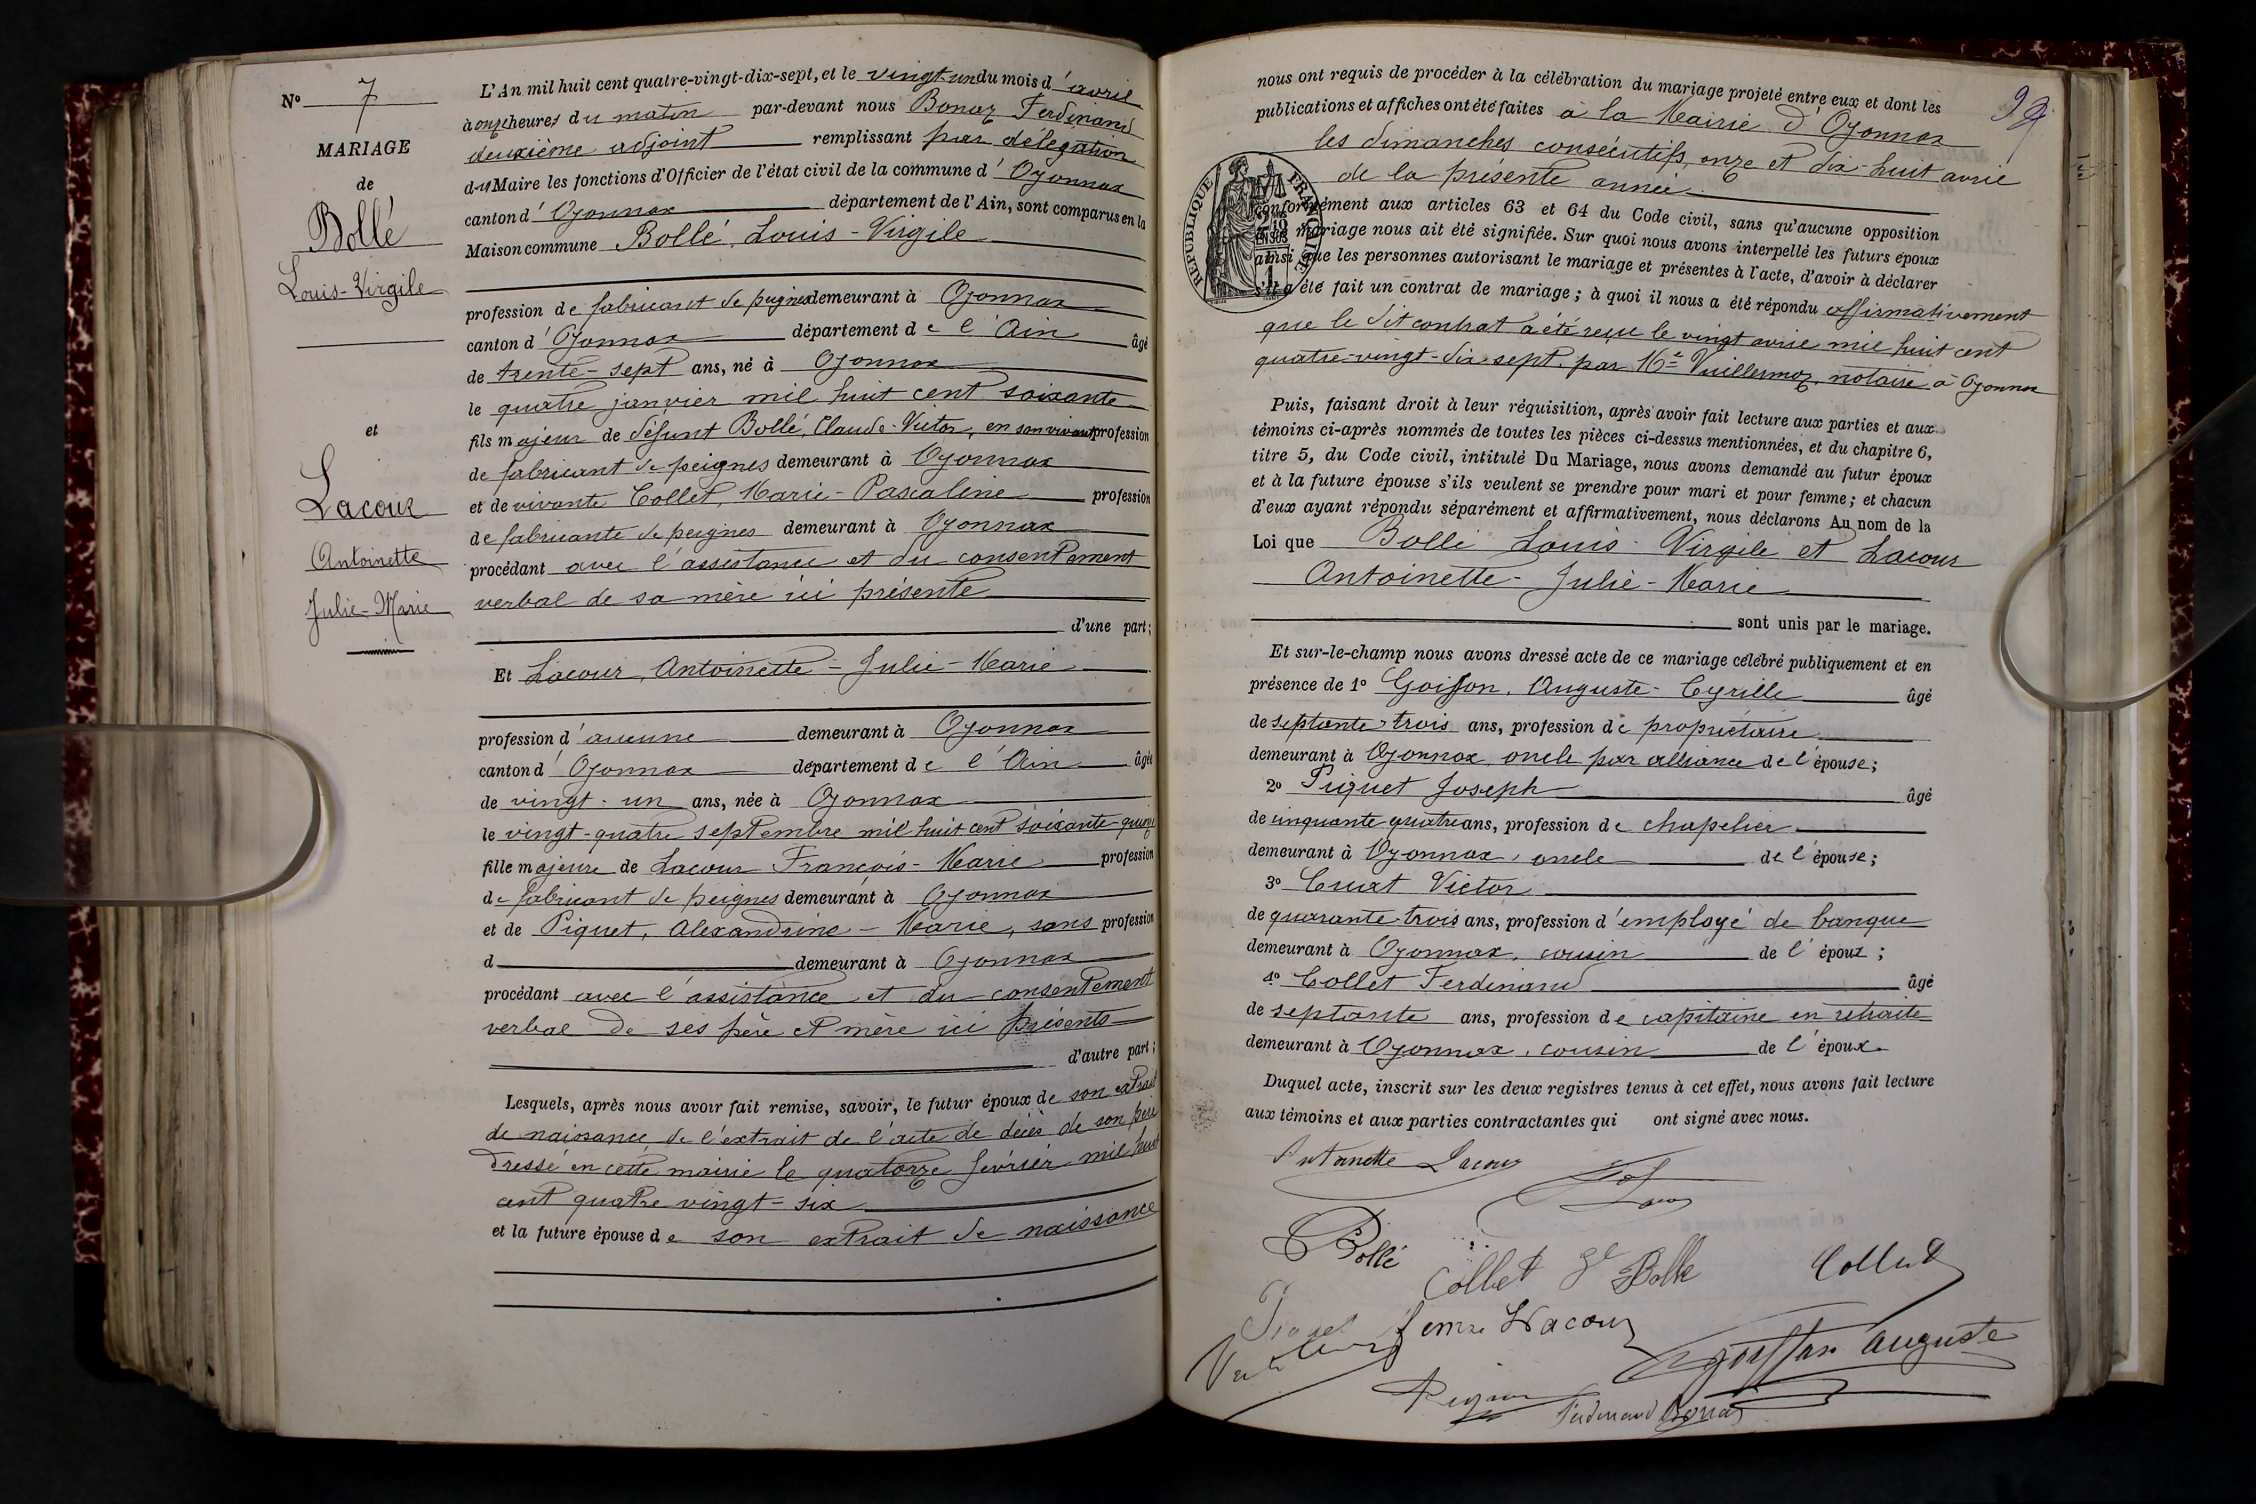 N° 7
MARIAGE
de
Bollé
Louis-Virgile
et
Lacour
Antoinette
Julie-Marie
L'An mil huit cent quatre-vingt-dix-sept, et le vingt-un du mois d'avril
à onze heures du matin par-devant nous Bonaz Ferdinand
deuxième adjoint remplissant par délégation
du Maire les fonctions d'Officier de l'état civil de la commune d'Oyonnax
canton d'Oyonnax département de l'Ain, sont comparus en la
Maison commune Bollé, Louis-Virgile
profession de fabricant de peignes demeurant à Oyonnax
canton d'Oyonnax département de l'Ain âgé
de trente-sept ans, né à Oyonnax
le quatre janvier mil huit cent soixante
fils majeur de défunt Bollé, Claude-Victor, en son vivant profession
de fabricant de peignes demeurant à Oyonnax
et de vivante Collet, Marie-Pascaline profession
de fabricante de peignes demeurant à Oyonnax
procédant avec l'assistance et du consentement
verbal de sa mère ici présente
d'une part;
Et Lacour, Antoinette-Julie-Marie
profession d'aucune demeurant à Oyonnax
canton d'Oyonnax département de l'Ain âgée
de vingt-un ans, née à Oyonnax
le vingt-quatre septembre mil huit cent soixante-quinze
fille majeure de Lacour François-Marie profession
de fabricant de peignes demeurant à Oyonnax
et de Piquet, Alexandrine-Marie, sans profession
d demeurant à Oyonnax
procédant avec l'assistance et du consentement
verbal de ses père et mère ici présents
d'autre part;
Lesquels, après nous avoir fait remise, savoir, le futur époux de son extrait
de naissance de l'extrait de l'acte de décès de son père
dressé en cette mairie le quatorze février mil huit
cent quatre vingt-six
et la future épouse de son extrait de naissance
nous ont requis de procéder à la célébration du mariage projeté entre eux et dont les
publications et affiches ont été faites à la Mairie d'Oyonnax
les dimanches consécutifs, onze et dix-huit avril
de la présente année
RÉPUBLIQUE FRANÇAISE
conformément aux articles 63 et 64 du Code civil, sans qu'aucune opposition
mariage nous ait été signifiée. Sur quoi nous avons interpellé les futurs époux
ainsi que les personnes autorisant le mariage et présentes à l'acte, d'avoir à déclarer
s'il a été fait un contrat de mariage; à quoi il nous a été répondu affirmativement
que le dit contrat a été reçu le vingt avril mil huit cent
quatre-vingt-dix-sept, par Me Vuillermoz, notaire à Oyonnax
Puis, faisant droit à leur réquisition, après avoir fait lecture aux parties et aux
témoins ci-après nommés de toutes les pièces ci-dessus mentionnées, et du chapitre 6,
titre 5, du Code civil, intitulé Du Mariage, nous avons demandé au futur époux
et à la future épouse s'ils veulent se prendre pour mari et pour femme; et chacun
d'eux ayant répondu séparément et affirmativement, nous déclarons Au nom de la
Loi que Bollé Louis-Virgile et Lacour
Antoinette-Julie-Marie
sont unis par le mariage.
Et sur-le-champ nous avons dressé acte de ce mariage célébré publiquement et en
présence de 1° Goiffon, Auguste-Cyrille âgé
de septante-trois ans, profession de propriétaire
demeurant à Oyonnax, oncle par alliance de l'épouse;
2° Piquet Joseph âgé
de cinquante-quatre ans, profession de chapelier
demeurant à Oyonnax, oncle de l'épouse;
3° Cuaz Victor
de quarante-trois ans, profession d'employé de banque
demeurant à Oyonnax, cousin de l'époux;
4° Collet Ferdinand âgé
de septante ans, profession de capitaine en retraite
demeurant à Oyonnax, cousin de l'époux.
Duquel acte, inscrit sur les deux registres tenus à cet effet, nous avons fait lecture
aux témoins et aux parties contractantes qui ont signé avec nous.
Antoinette Lacour
Bollé
Collet Bollé
Collet
Piquet femme Lacour
Goiffon Auguste
Ferdinand Bonaz